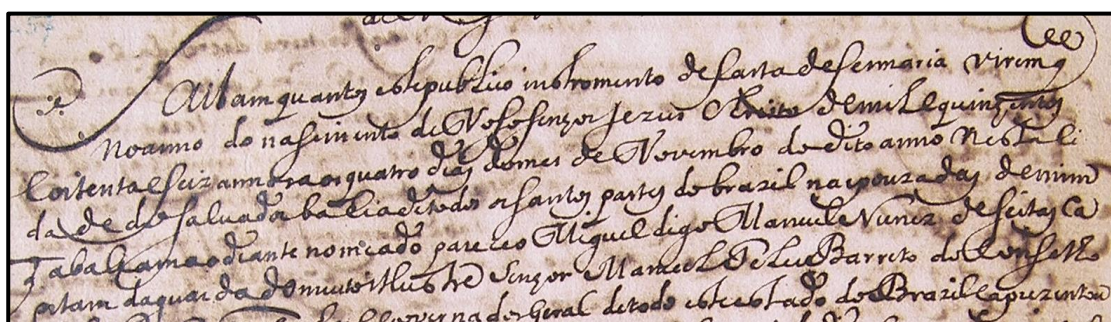 Saibam quantos este publico instromento de carta de sesmaria virem q
no anno do nascimento de Noso senhor Jezus Christo de mil e quinhentos
e oitenta e seiz annos aos quatro dias do mes de Novembro do dito anno nesta ci
dade do Salvador bahia de todos os santos partes do brazil nas pouzadas de mim
Tabaliam ao diante nomeado pareceo Miguel digo Manuel Nunez de seitas ca
pitam da guarda do muito illustre senhor Manuel Telles Barreto do Conselho
governador Geral de todo este estado do Brazil apuzentou